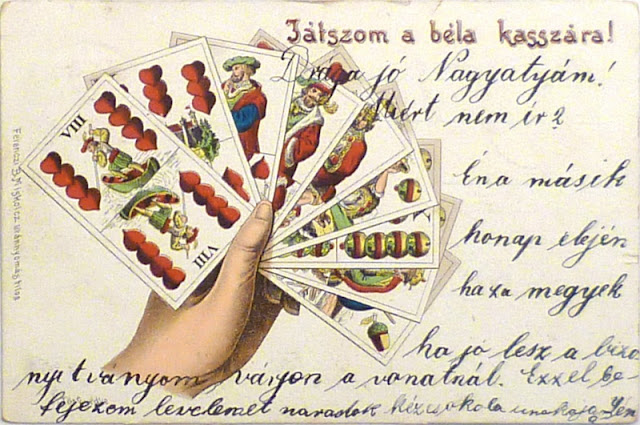 Játszom a béla kasszára!
Drága jó Nagyatyám!
Miért nem ír?
Én a másik
honap elején
haza megyek
ha jó lesz a bizo
nyitványom, várjon a vonatnál. Ezzel be-
fejezem levelemet maradok kézcsókoló unokája
VIII
VIII
Ferenczi B. Miskolcz